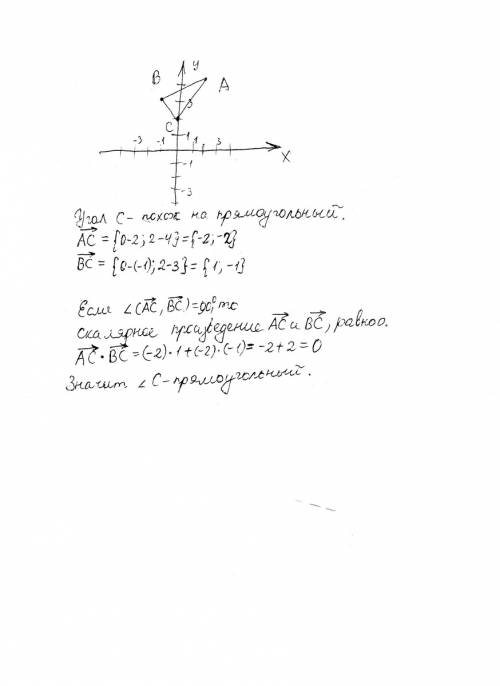 y
B
A
3
C
-3 -1 1 1 3
X
-1
-3
Угол С - похож на прямоугольный.
AC = {0-2; 2-4} = {-2; -2}
BC = {0-(-1); 2-3} = {1; -1}
Если ∠(AC, BC) = 90°, то
скалярное произведение AC и BC, равно 0.
AC · BC = (-2)·1 + (-2)·(-1) = -2 + 2 = 0
Значит ∠ С - прямоугольный.